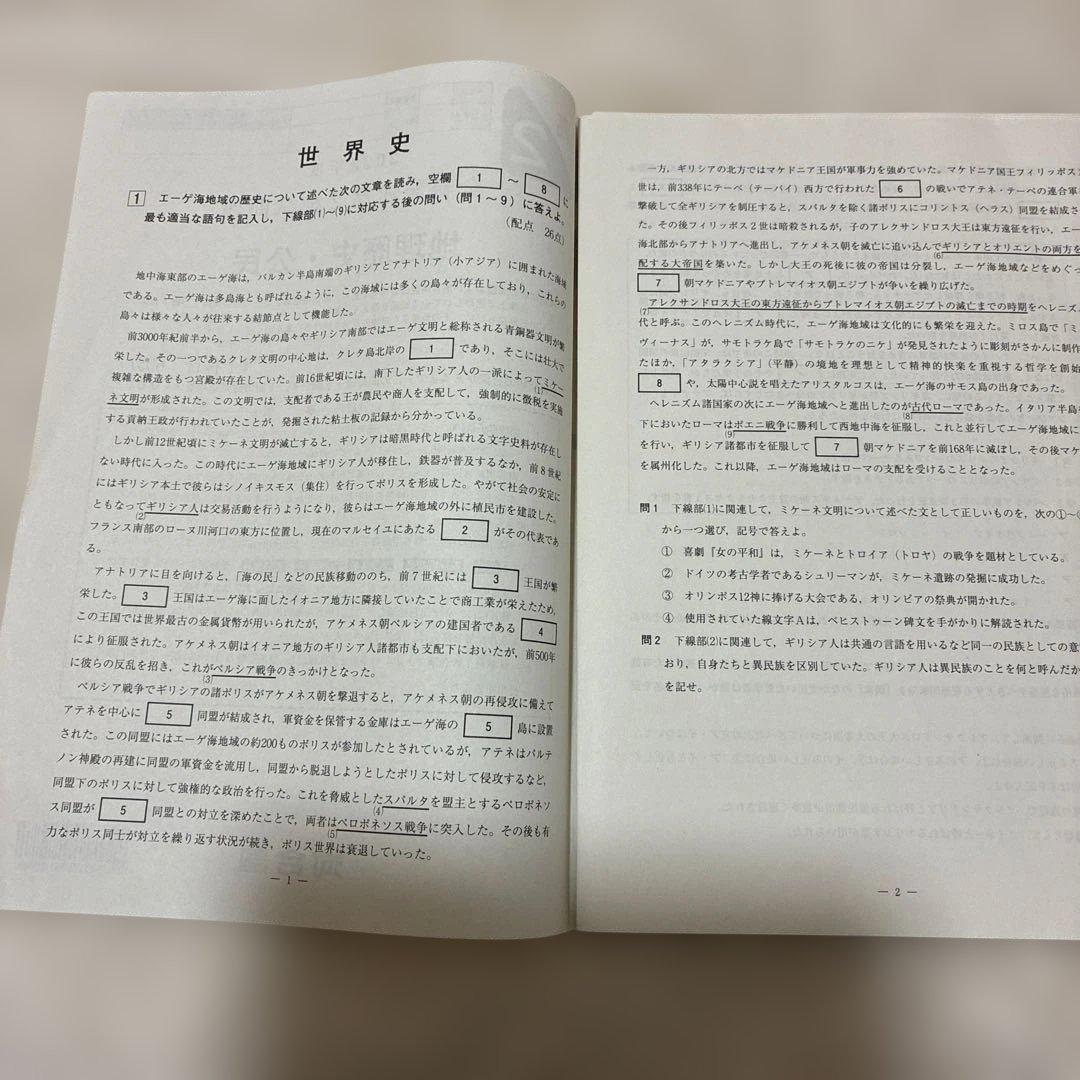 世界史
1 エーゲ海地域の歴史について述べた次の文章を読み，空欄 1 ～ 8 に
最も適当な語句を記入し，下線部(1)～(9)に対応する後の問い（問1～9）に答えよ。
（配点 26点）
地中海東部のエーゲ海は，バルカン半島南端のギリシアとアナトリア（小アジア）に囲まれた海域
である。エーゲ海は多島海とも呼ばれるように，この海域には多くの島々が存在しており，これらの
島々は様々な人々が往来する結節点として機能した。
前3000年紀前半から，エーゲ海の島々やギリシア南部ではエーゲ文明と総称される青銅器文明が繁
栄した。その一つであるクレタ文明の中心地は，クレタ島北岸の 1 であり，そこには壮大で
複雑な構造をもつ宮殿が存在していた。前16世紀頃には，南下したギリシア人の一派によってミケー
(1)
ネ文明が形成された。この文明では，支配者である王が農民や商人を支配して，強制的に徴税を実施
する貢納王政が行われていたことが，発掘された粘土板の記録から分かっている。
しかし前12世紀頃にミケーネ文明が滅亡すると，ギリシアは暗黒時代と呼ばれる文字史料が存在し
ない時代に入った。この時代にエーゲ海地域にギリシア人が移住し，鉄器が普及するなか，前8世紀
にはギリシア本土で彼らはシノイキスモス（集住）を行ってポリスを形成した。やがて社会の安定に
ともなってギリシア人は交易活動を行うようになり，彼らはエーゲ海地域の外に植民市を建設した。
(2)
フランス南部のローヌ川河口の東方に位置し，現在のマルセイユにあたる 2 がその代表であ
る。
アナトリアに目を向けると，「海の民」などの民族移動ののち，前7世紀には 3 王国が繁
栄した。 3 王国はエーゲ海に面したイオニア地方に隣接していたことで商工業が栄えたため，
この王国では世界最古の金属貨幣が用いられたが，アケメネス朝ペルシアの建国者である 4
により征服された。アケメネス朝はイオニア地方のギリシア人諸都市も支配下においたが，前500年
に彼らの反乱を招き，これがペルシア戦争のきっかけとなった。
(3)
ペルシア戦争でギリシアの諸ポリスがアケメネス朝を撃退すると，アケメネス朝の再侵攻に備えて
アテネを中心に 5 同盟が結成され，軍資金を保管する金庫はエーゲ海の 5 島に設置
された。この同盟にはエーゲ海地域の約200ものポリスが参加したとされているが，アテネはパルテ
ノン神殿の再建に同盟の軍資金を流用し，同盟から脱退しようとしたポリスに対して侵攻するなど，
同盟下のポリスに対して強権的な政治を行った。これを脅威としたスパルタを盟主とするペロポネソ
(4)
ス同盟が 5 同盟との対立を深めたことで，両者はペロポネソス戦争に突入した。その後も有
(5)
力なポリス同士が対立を繰り返す状況が続き，ポリス世界は衰退していった。
― 1 ―
一方，ギリシアの北方ではマケドニア王国が軍事力を強めていた。マケドニア国王フィリッポス
世は，前338年にテーベ（テーバイ）西方で行われた 6 の戦いでアテネ・テーベの連合軍
撃破して全ギリシアを制圧すると，スパルタを除く諸ポリスにコリントス（ヘラス）同盟を結成さ
た。その後フィリッポス2世は暗殺されるが，子のアレクサンドロス大王は東方遠征を行い，エー
海北部からアナトリアへ進出し，アケメネス朝を滅亡に追い込んでギリシアとオリエントの両方を
(6)
配する大帝国を築いた。しかし大王の死後に彼の帝国は分裂し，エーゲ海地域などをめぐっ
7 朝マケドニアやプトレマイオス朝エジプトが争いを繰り広げた。
アレクサンドロス大王の東方遠征からプトレマイオス朝エジプトの滅亡までの時期をヘレニズ
(7)
代と呼ぶ。このヘレニズム時代に，エーゲ海地域は文化的にも繁栄を迎えた。ミロス島で「ミ
ヴィーナス」が，サモトラケ島で「サモトラケのニケ」が発見されたように彫刻がさかんに制作
たほか，「アタラクシア」（平静）の境地を理想として精神的快楽を重視する哲学を創始
8 や，太陽中心説を唱えたアリスタルコスは，エーゲ海のサモス島の出身であった。
ヘレニズム諸国家の次にエーゲ海地域へと進出したのが古代ローマであった。イタリア半島
(8)
下においたローマはポエニ戦争に勝利して西地中海を征服し，これと並行してエーゲ海地域に
(9)
を行い，ギリシア諸都市を征服して 7 朝マケドニアを前168年に滅ぼし，その後マケ
を属州化した。これ以降，エーゲ海地域はローマの支配を受けることとなった。
問1 下線部(1)に関連して，ミケーネ文明について述べた文として正しいものを，次の①～
から一つ選び，記号で答えよ。
① 喜劇『女の平和』は，ミケーネとトロイア（トロヤ）の戦争を題材としている。
② ドイツの考古学者であるシュリーマンが，ミケーネ遺跡の発掘に成功した。
③ オリンポス12神に捧げる大会である，オリンピアの祭典が開かれた。
④ 使用されていた線文字Aは，ベヒストゥーン碑文を手がかりに解読された。
問2 下線部(2)に関連して，ギリシア人は共通の言語を用いるなど同一の民族としての意
おり，自身たちと異民族を区別していた。ギリシア人は異民族のことを何と呼んだか
を記せ。
― 2 ―